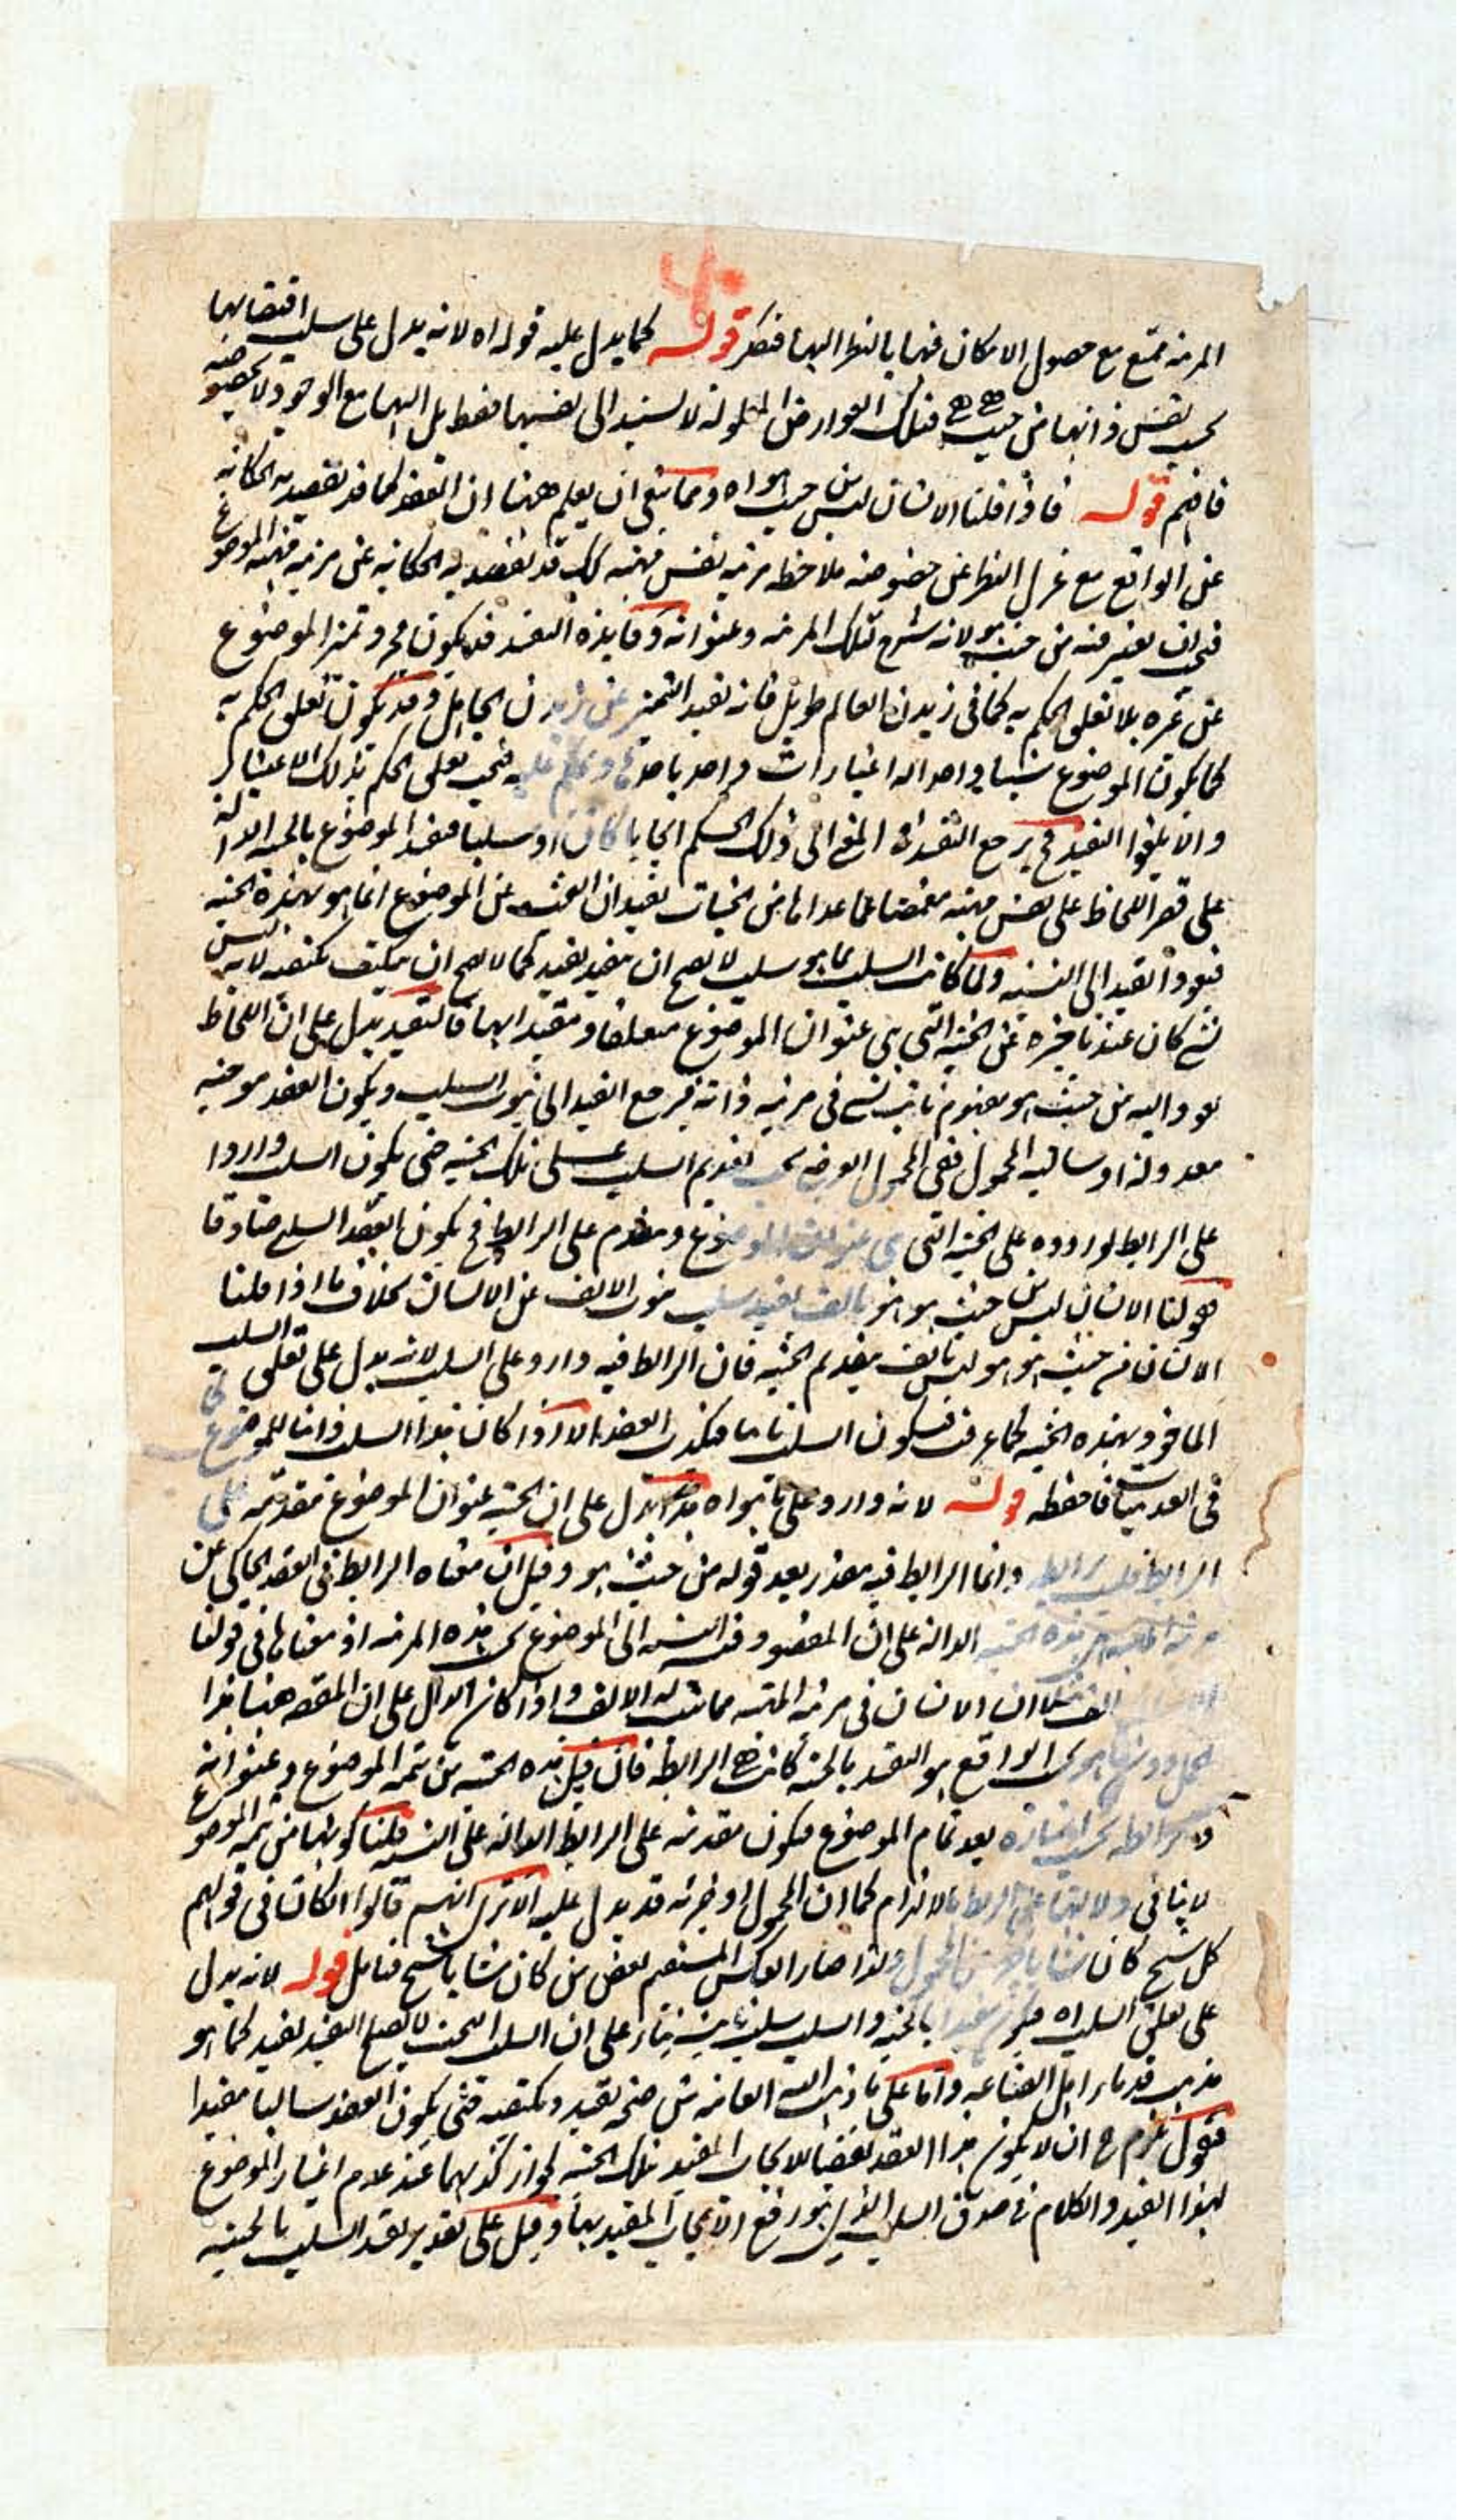 المرتبة ممتنع مع حصول الامكان فيها بالنظر اليها فتفكر قوله كما يدل عليه قوله اه لانه يدل على سلب اقتضائها
بحسب نفس ذاتها من حيث هي هي فتلك العوارض المعلولة لا تستند الى نفسها فقط بل اليها مع الوجود ولا بخصوصه
فافهم قوله فاذا قلنا الانسان ليس من حيث هو اه ومما ينبغي ان يعلم ههنا ان العقد كما قد يقصد به الحكاية
عن الواقع مع عزل النظر عن خصوصه ملاحظة مرتبة نفس مهيته كك قد يقصد به الحكاية عن مرتبة مهية الموضوع
فيجب ان يعتبر فيه من حيث هو لانه شرح تلك المرتبة وعنوانه وفايدة التقييد قد يكون مجرد تميز الموضوع
عن غيره بلا تعلق الحكم به كما في زيدن العالم طويل فانه يفيد التميز عن زيدن الجاهل وقد يكون تعلق الحكم به
كما يكون الموضوع شيئا واحدا له اعتبارات واحد باحدها ويحكم عليه فيجب تعلق الحكم بذلك الاعتبار
والا يلغوا التقييد فح يرجع التقييد في المعنى الى ذلك الحكم ايجابا كان او سلبا فتقييد الموضوع بالحيثية الدالة
على قصر اللحاظ على نفس مهيته مغمضا عما عداها من الحيثيات يفيد ان البحث عن الموضوع انما هو بهذه الحيثية
فيعود القيد الى النسبة ولما كان السلب بما هو سلب لا يصح ان يتقيد بقيد كما لا يصح ان يتكيف بكيفية لانه ليس
بشيء كان عند تاخيره عن الحيثية التي هي عنوان الموضوع متعلقا ومقيدا بها فالتقييد يدل على ان اللحاظ
يعود اليه من حيث هو مفهوم ثابت لشيء في مرتبة ذاته فيرجع القيد الى ثبوت السلب ويكون العقد موجبه
معدولة او سالبة المحمول ففي المحمول العرضي يجب تقديم السلب على تلك الحيثية حتى يكون السلب واردا
على الرابط لوروده على الحيثية التي هي عنوان الموضوع ومقدم على الرابط فح يكون العقد السلبي صادقا
فقولنا الانسان ليس من حيث هو هو بالف يفيد سلب ثبوت الالف عن الانسان بخلاف ما اذا قلنا
الانسان من حيث هو هو ليس بالف بتقديم الحيثية فان الرابط فيه وارد على السلب لانه يدل على تعلق السلب
الماخوذ بهذه الحيثية كما عرفت فيكون السلب ثابتا فيكذب العقد الا اذا كان هذا السلب ذاتيا للموضوع
في العدميات فاحفظه قوله لانه وارد على ما هو اه يدل على ان الحيثية عنوان الموضوع مقدمة على
الرابط وانما الرابط فيه مقدر بعد قوله من حيث هو وقيل ان معناه الرابط في العقد الحاكي عن
مرتبة الماهية هي هذه الحيثية الدالة على ان المقصود فيه النسبة الى الموضوع بحسب هذه المرتبة اذ معناها في قولنا
الف مثلا ان الانسان في مرتبة المهية مما يثبت له الالف واذا كان الدال على ان المقصود ههنا هذا
الحمل دون ما هو في الواقع هو التقييد بالحيثية كانت هي الرابطة فان قيل هذه الحيثية من تتمة الموضوع وعنوانه
والرابطة يجب اعتباره بعد تمام الموضوع فيكون مقدمة على الرابط الدالة على النسبة قلنا كونها من تتمة الموضوع
لا ينافي دلالتها على الربط بالالتزام كما ان المحمول او جزئه قد يدل عليه الا ترى انهم قالوا الكان في قولهم
كل شيخ كان شابا جزء من المحمول ولذا صار العكس المستقيم بعض من كان شابا شيخ فتامل قوله لانه يدل
على تعلق السلب اه فيكون مقيدا بالحيثية والسلب سلب ثابت بناء على ان السلب البحت لا يصلح التقييد بقيد كما هو
مذهب قدماء اهل الصناعه واما على ما ذهب اليه العامة من صحة تقييد وتكيفه فحتى يكون العقد سالبا مقيدا
فنقول يلزم ح ان لا يكون هذا العقد نقيضا للايجاب المقيد بتلك الحيثية لجواز كذبهما عند عدم اعتبار الموضوع
بهذا القيد والكلام في صدق السلب الذي هو رفع الايجاب المقيد بها وقيل على تقدير تقييد السلب بالحيثية